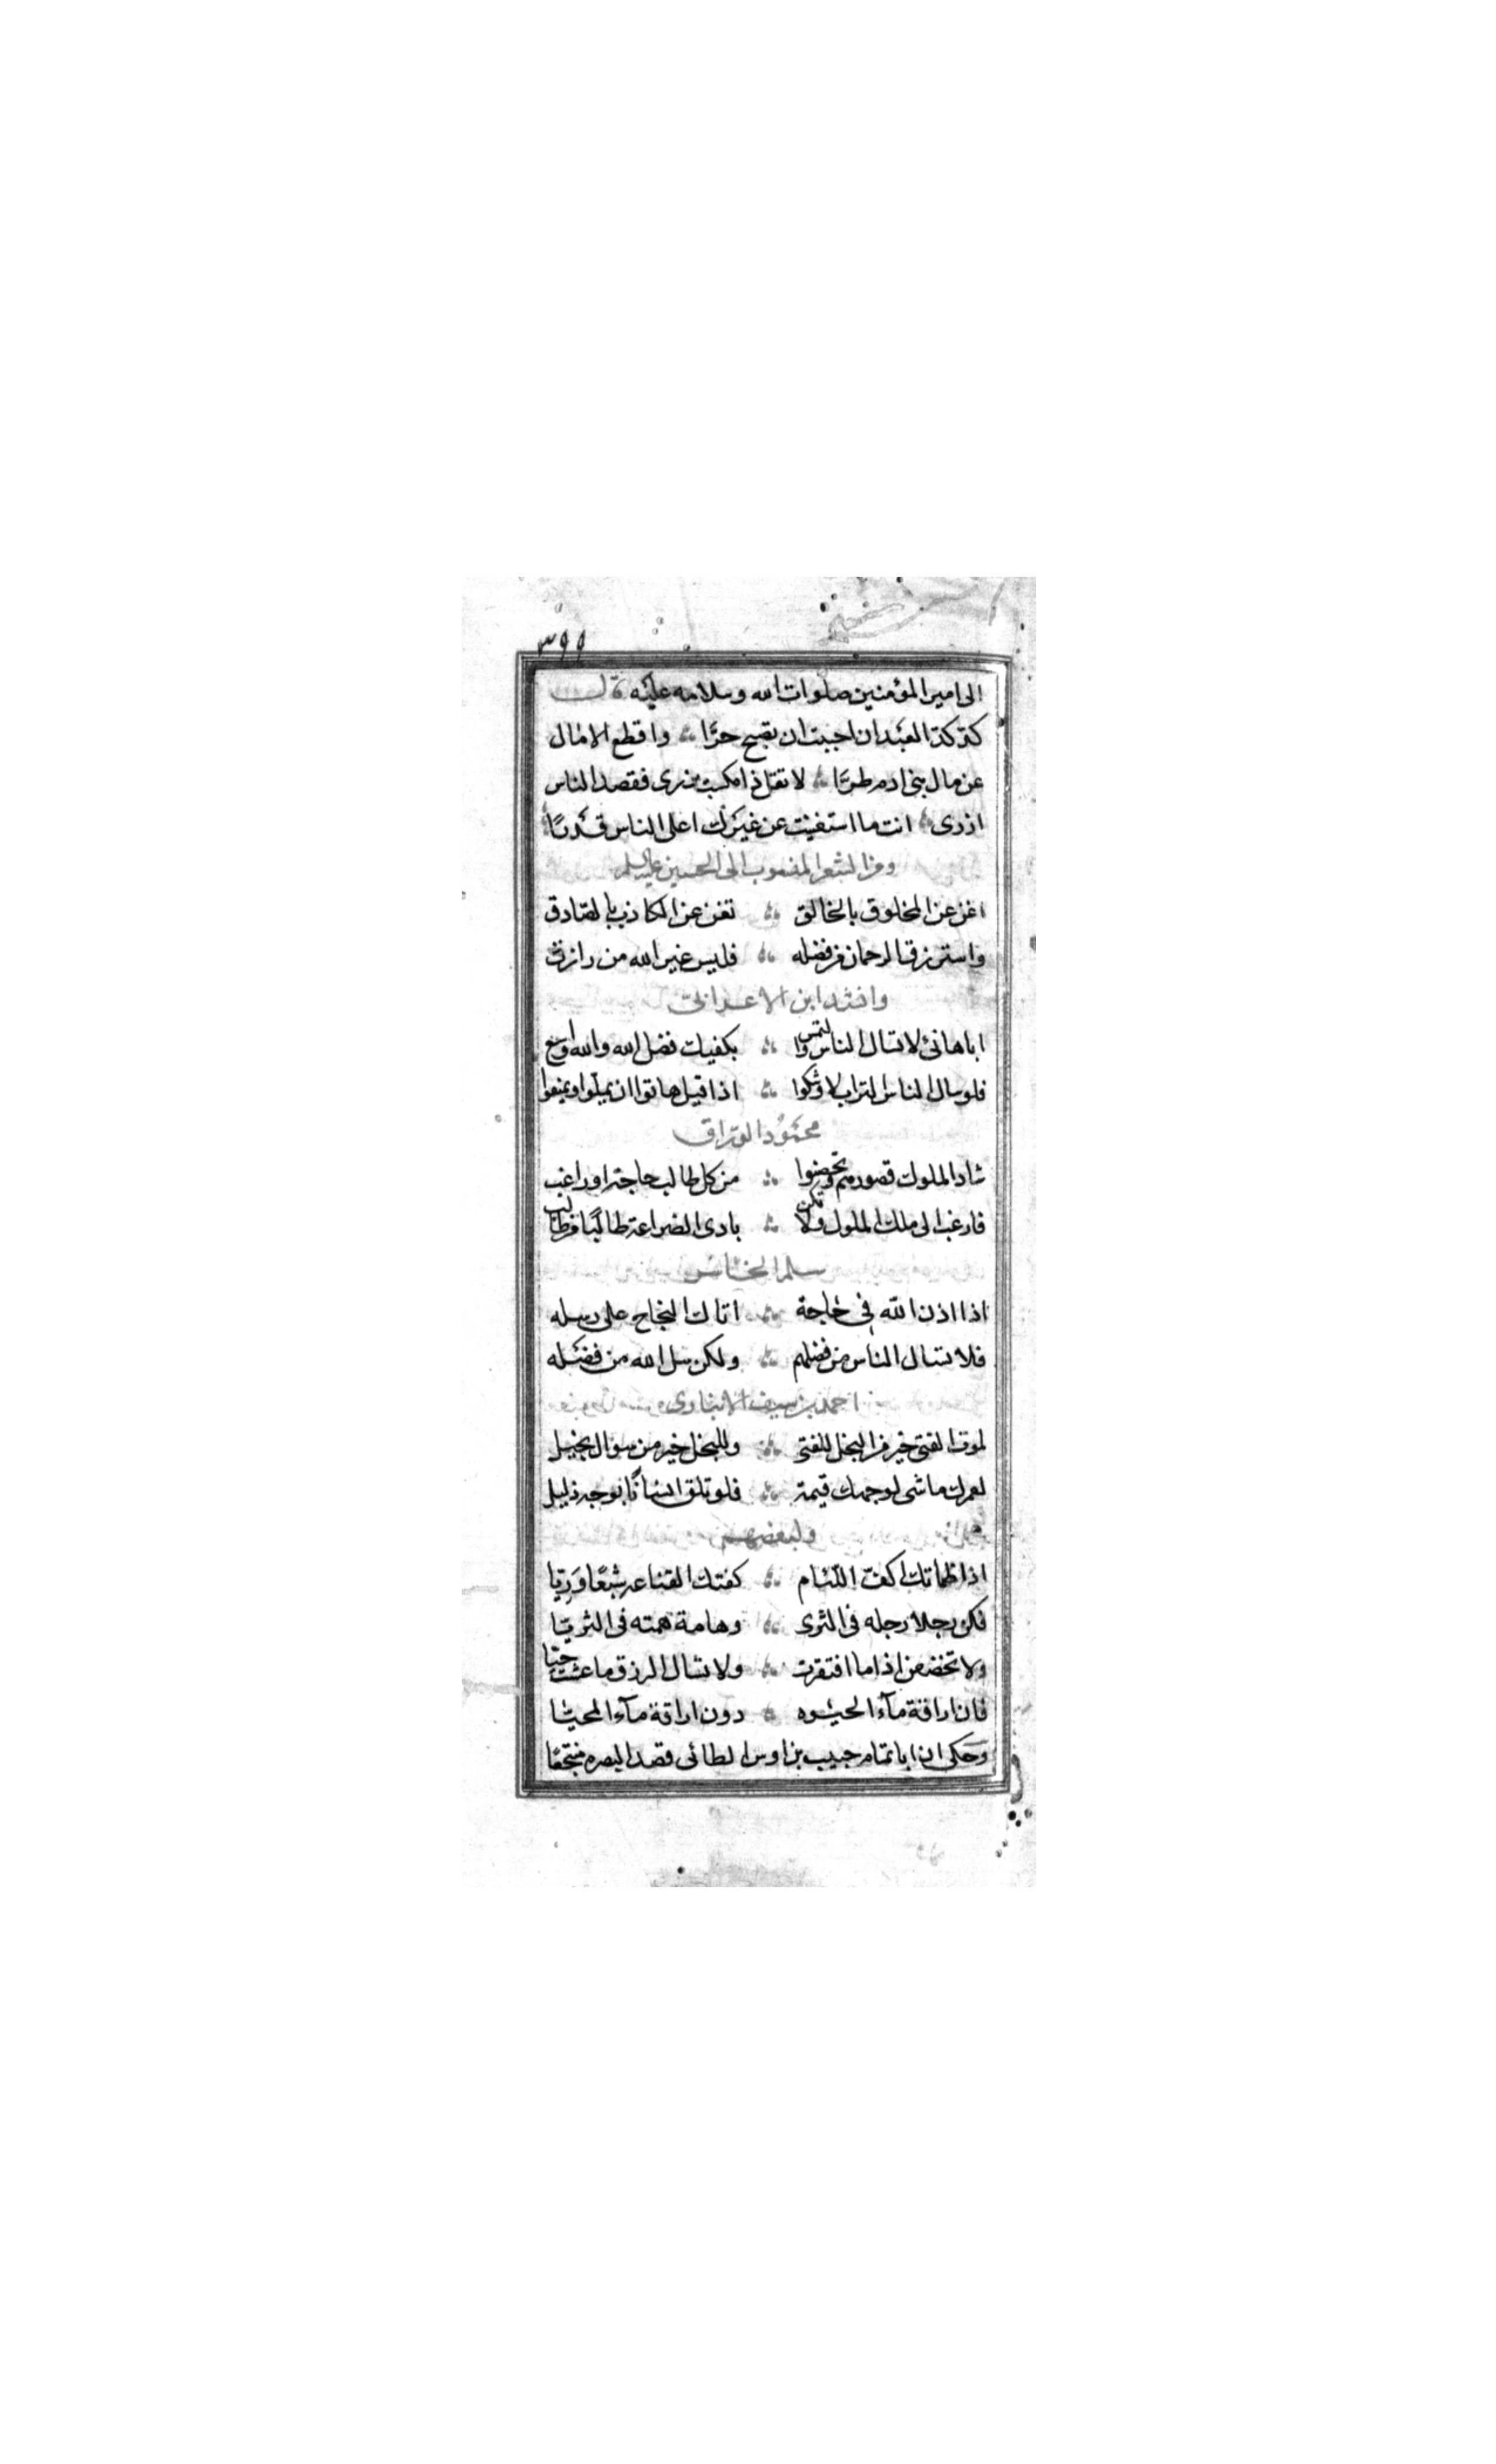 ٣٩٩
الى امير المؤمنين صلوات الله وسلامه عليه قال
كد كد العبد ان احببت ان تصبح حرا واقطع الامال
عن مال بني ادم طرا لا تقل ذا مكسب يزرى فقصد الناس
ازرى انت ما استغنيت عن غيرك اعلى الناس قدرا
ومن الشعر المنسوب الى الحسين عليه السلم
اغن عن المخلوق بالخالق تغن عن الكاذب بالصادق
واسترزق الرحمان من فضله فليس غير الله من رازق
وانشد ابن الاعرابى
اباهانئ لا تسال الناس والتمس بكفيك فضل الله والله اوسع
فلو سال الناس التراب لاوشكوا اذا قيل هاتوا ان يملوا ويمنعوا
محمود الوراق
شاد الملوك قصورهم وتحصنوا من كل طالب حاجة او راغب
فارغب الى ملك الملوك ولا تكن بادى الضراعة طالبا من طالب
سلم الخاسر
اذا اذن الله فى حاجة اتاك النجاح على رسله
فلا تسال الناس من فضلهم ولكن سل الله من فضله
احمد بن سيف الانبارى
لموت الفتى خير من البخل للفتى وللبخل خير من سوال بخيل
لعمرك ما شى لوجهك قيمة فلو تلق انسانا بوجه ذليل
ولبعضهم
اذا ظماتك اكف اللئام كفتك القناعه شبعا وريا
فكن رجلا رجله فى الثرى وهامة همته فى الثريا
ولا تخضعن اذا ما افتقرت ولا تسال الرزق ما عشت حيا
فان اراقة مآء الحيوه دون اراقة مآء المحيا
وحكى ان ابا تمام حبيب بن اوس الطائى قصد البصره منتجعا